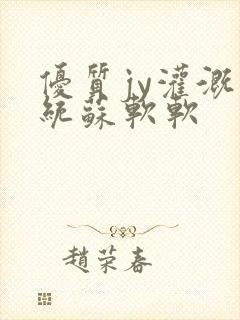 優質jy灌溉
統蘇軟軟
趙荣春